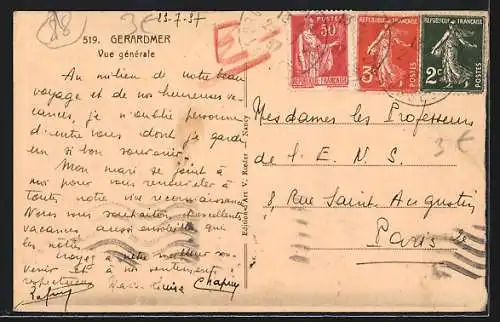 88
3€
13-7-37
519. GERARDMER
Vue générale
Au milieu de notre beau
voyage et de nos heureuses va-
cances, je n'oublie personne
d'entre vous dont je garde
un si bon souvenir.
Mon mari se joint à
moi pour vous renouveler à
toutes notre vive reconnaissance
Nous vous souhaitons d'excellentes
vacances aussi ensoleillées que
les nôtres
Croyez à notre meilleur sou-
venir et à nos sentiments
respectueux
Marie-Louise Chapuy
Edition d'Art V. Roeder Nancy
POSTES
50c
REPUBLIQUE FRANÇAISE
3c
POSTES
2c
POSTES
Mesdames les Professeurs
3€
de l'E. N. S.
8, Rue Saint-Augustin
Paris 2e